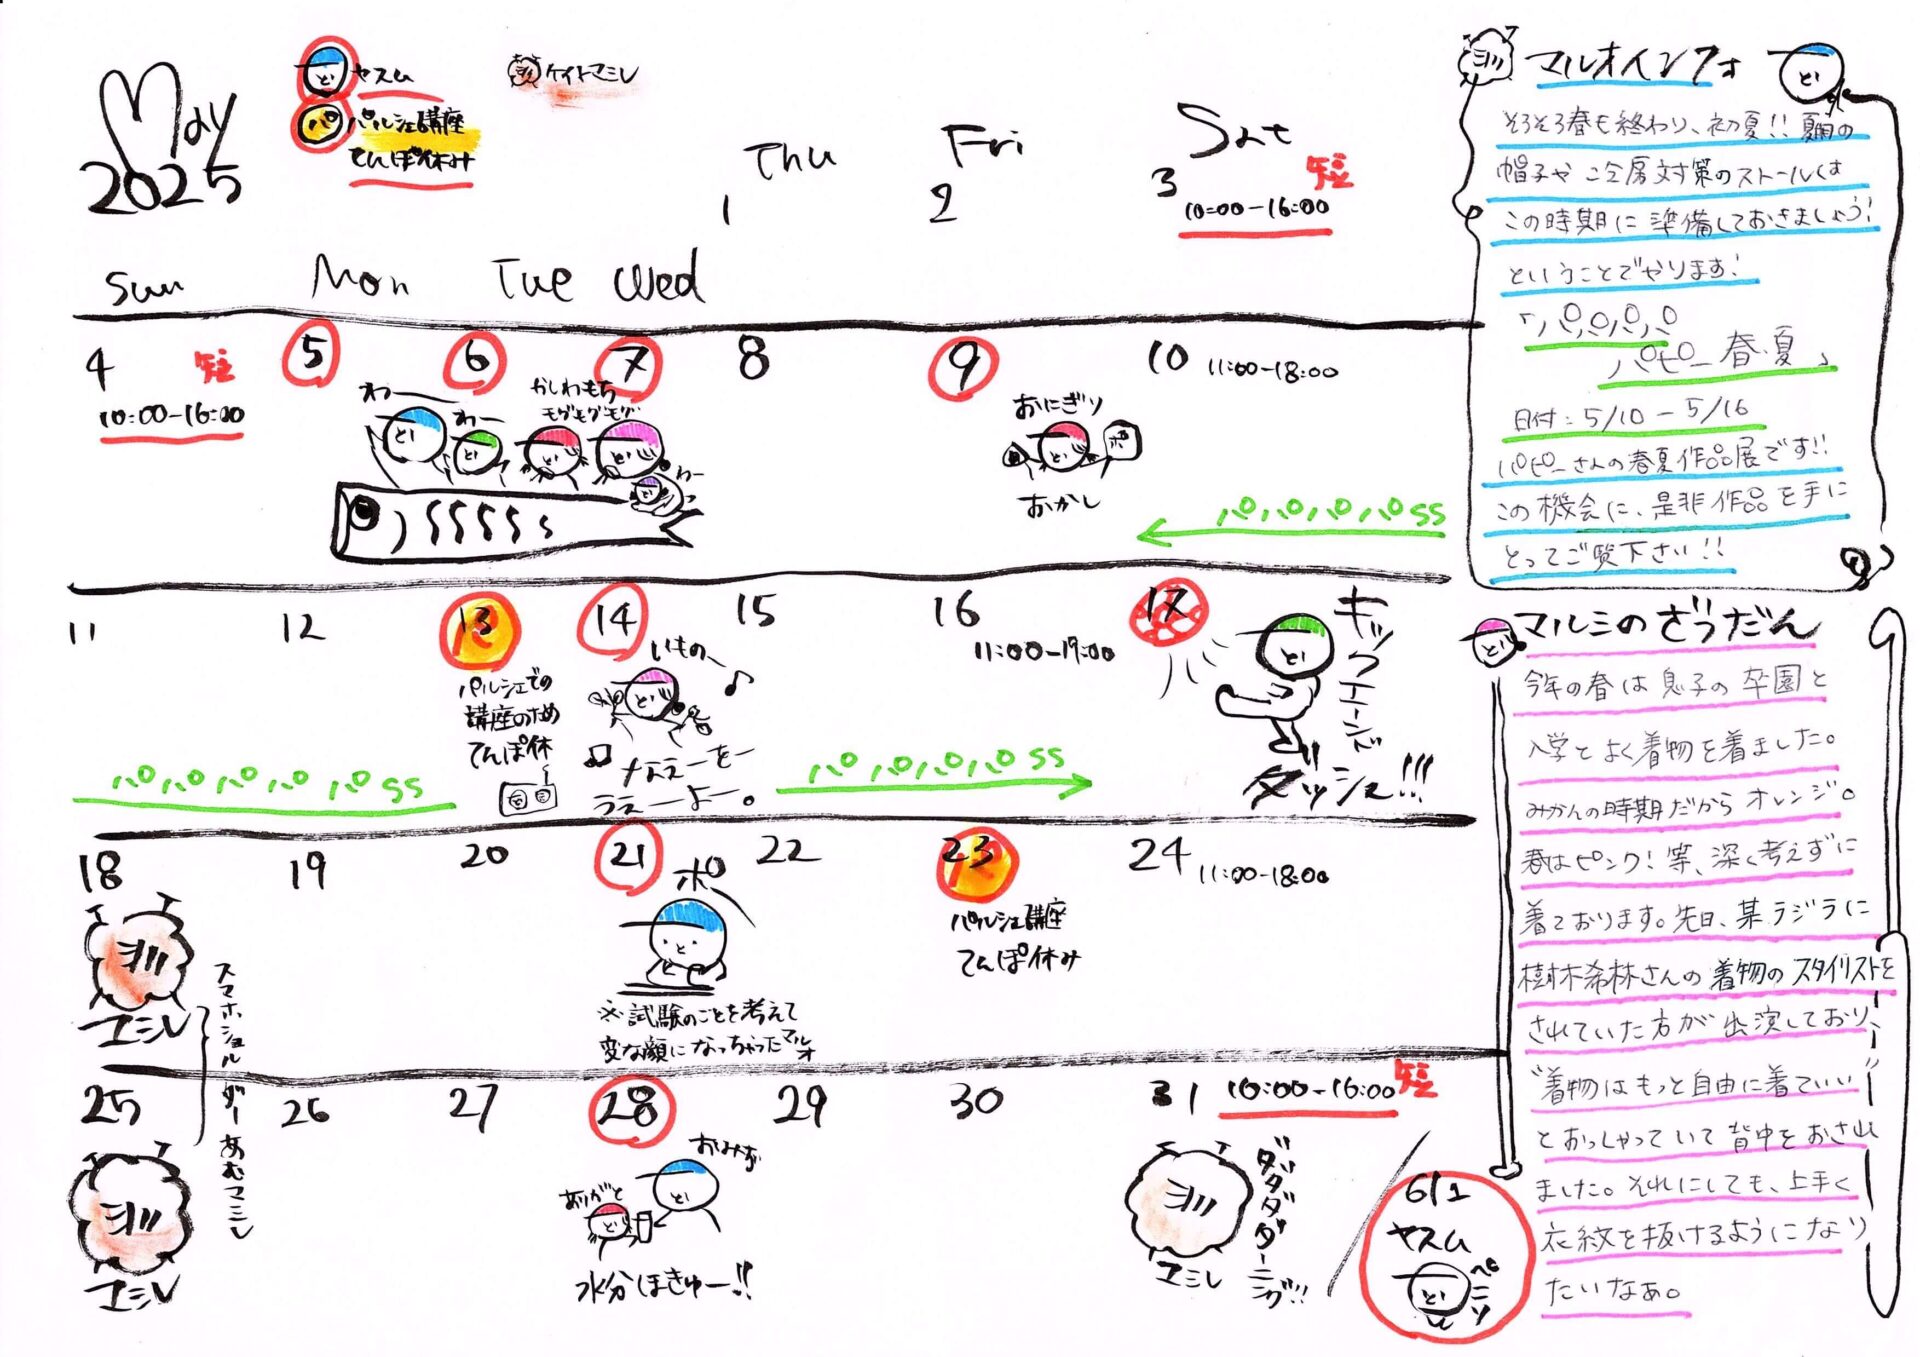 May
2025
ヤスム
パ パルシェ講座
てんぽ休み
ケイトマミレ
Sun
Mon
Tue
Wed
Thu
Fri
Sat
1
2
3 短
10:00-16:00
4 短
10:00-16:00
5
6
7
わー
わー
かしわもち
モグモグモグ
わー
8
9
おにぎり
おかし
10 11:00-18:00
パパパパSS
11
12
パパパパパSS
13
パルシェでの
講座のため
てんぽ休
14
いものー
なえーをー
うえーよー。
15
16
11:00-19:00
パパパパSS
17
キックエーンド
ダッシュ!!!
18
マミレ
19
20
21
ポ
※試験のことを考えて
変な顔になっちゃったマルオ
22
23
パルシェ講座
てんぽ休み
24 11:00-18:00
スマホショルダーあむマミレ
25
マミレ
26
27
28
おみず
ありがと
水分ほきゅー!!
29
30
31 10:00-16:00 短
マミレ
ダダダダダーニング!!!
6/1
ヤスム
ペコリ
マルオインフォ
そろそろ春も終わり、初夏!!夏用の
帽子や冷房対策のストールは
この時期に準備しておきましょう!
ということでやります!
「パパパパ
パピー春・夏」
日付:5/10-5/16
パピーさんの春夏作品展です!!
この機会に、是非作品を手に
とってご覧下さい!!
マルミのざつだん
今年の春は息子の卒園と
入学とよく着物を着ました。
みかんの時期だからオレンジ。
春はピンク!等、深く考えずに
着ております。先日、某ラジラに
樹木希林さんの着物のスタイリストを
されていた方が出演しており、
"着物はもっと自由に着ていい"
とおっしゃっていて背中をおされ
ました。それにしても、上手く
衣紋を抜けるようになり
たいなぁ。